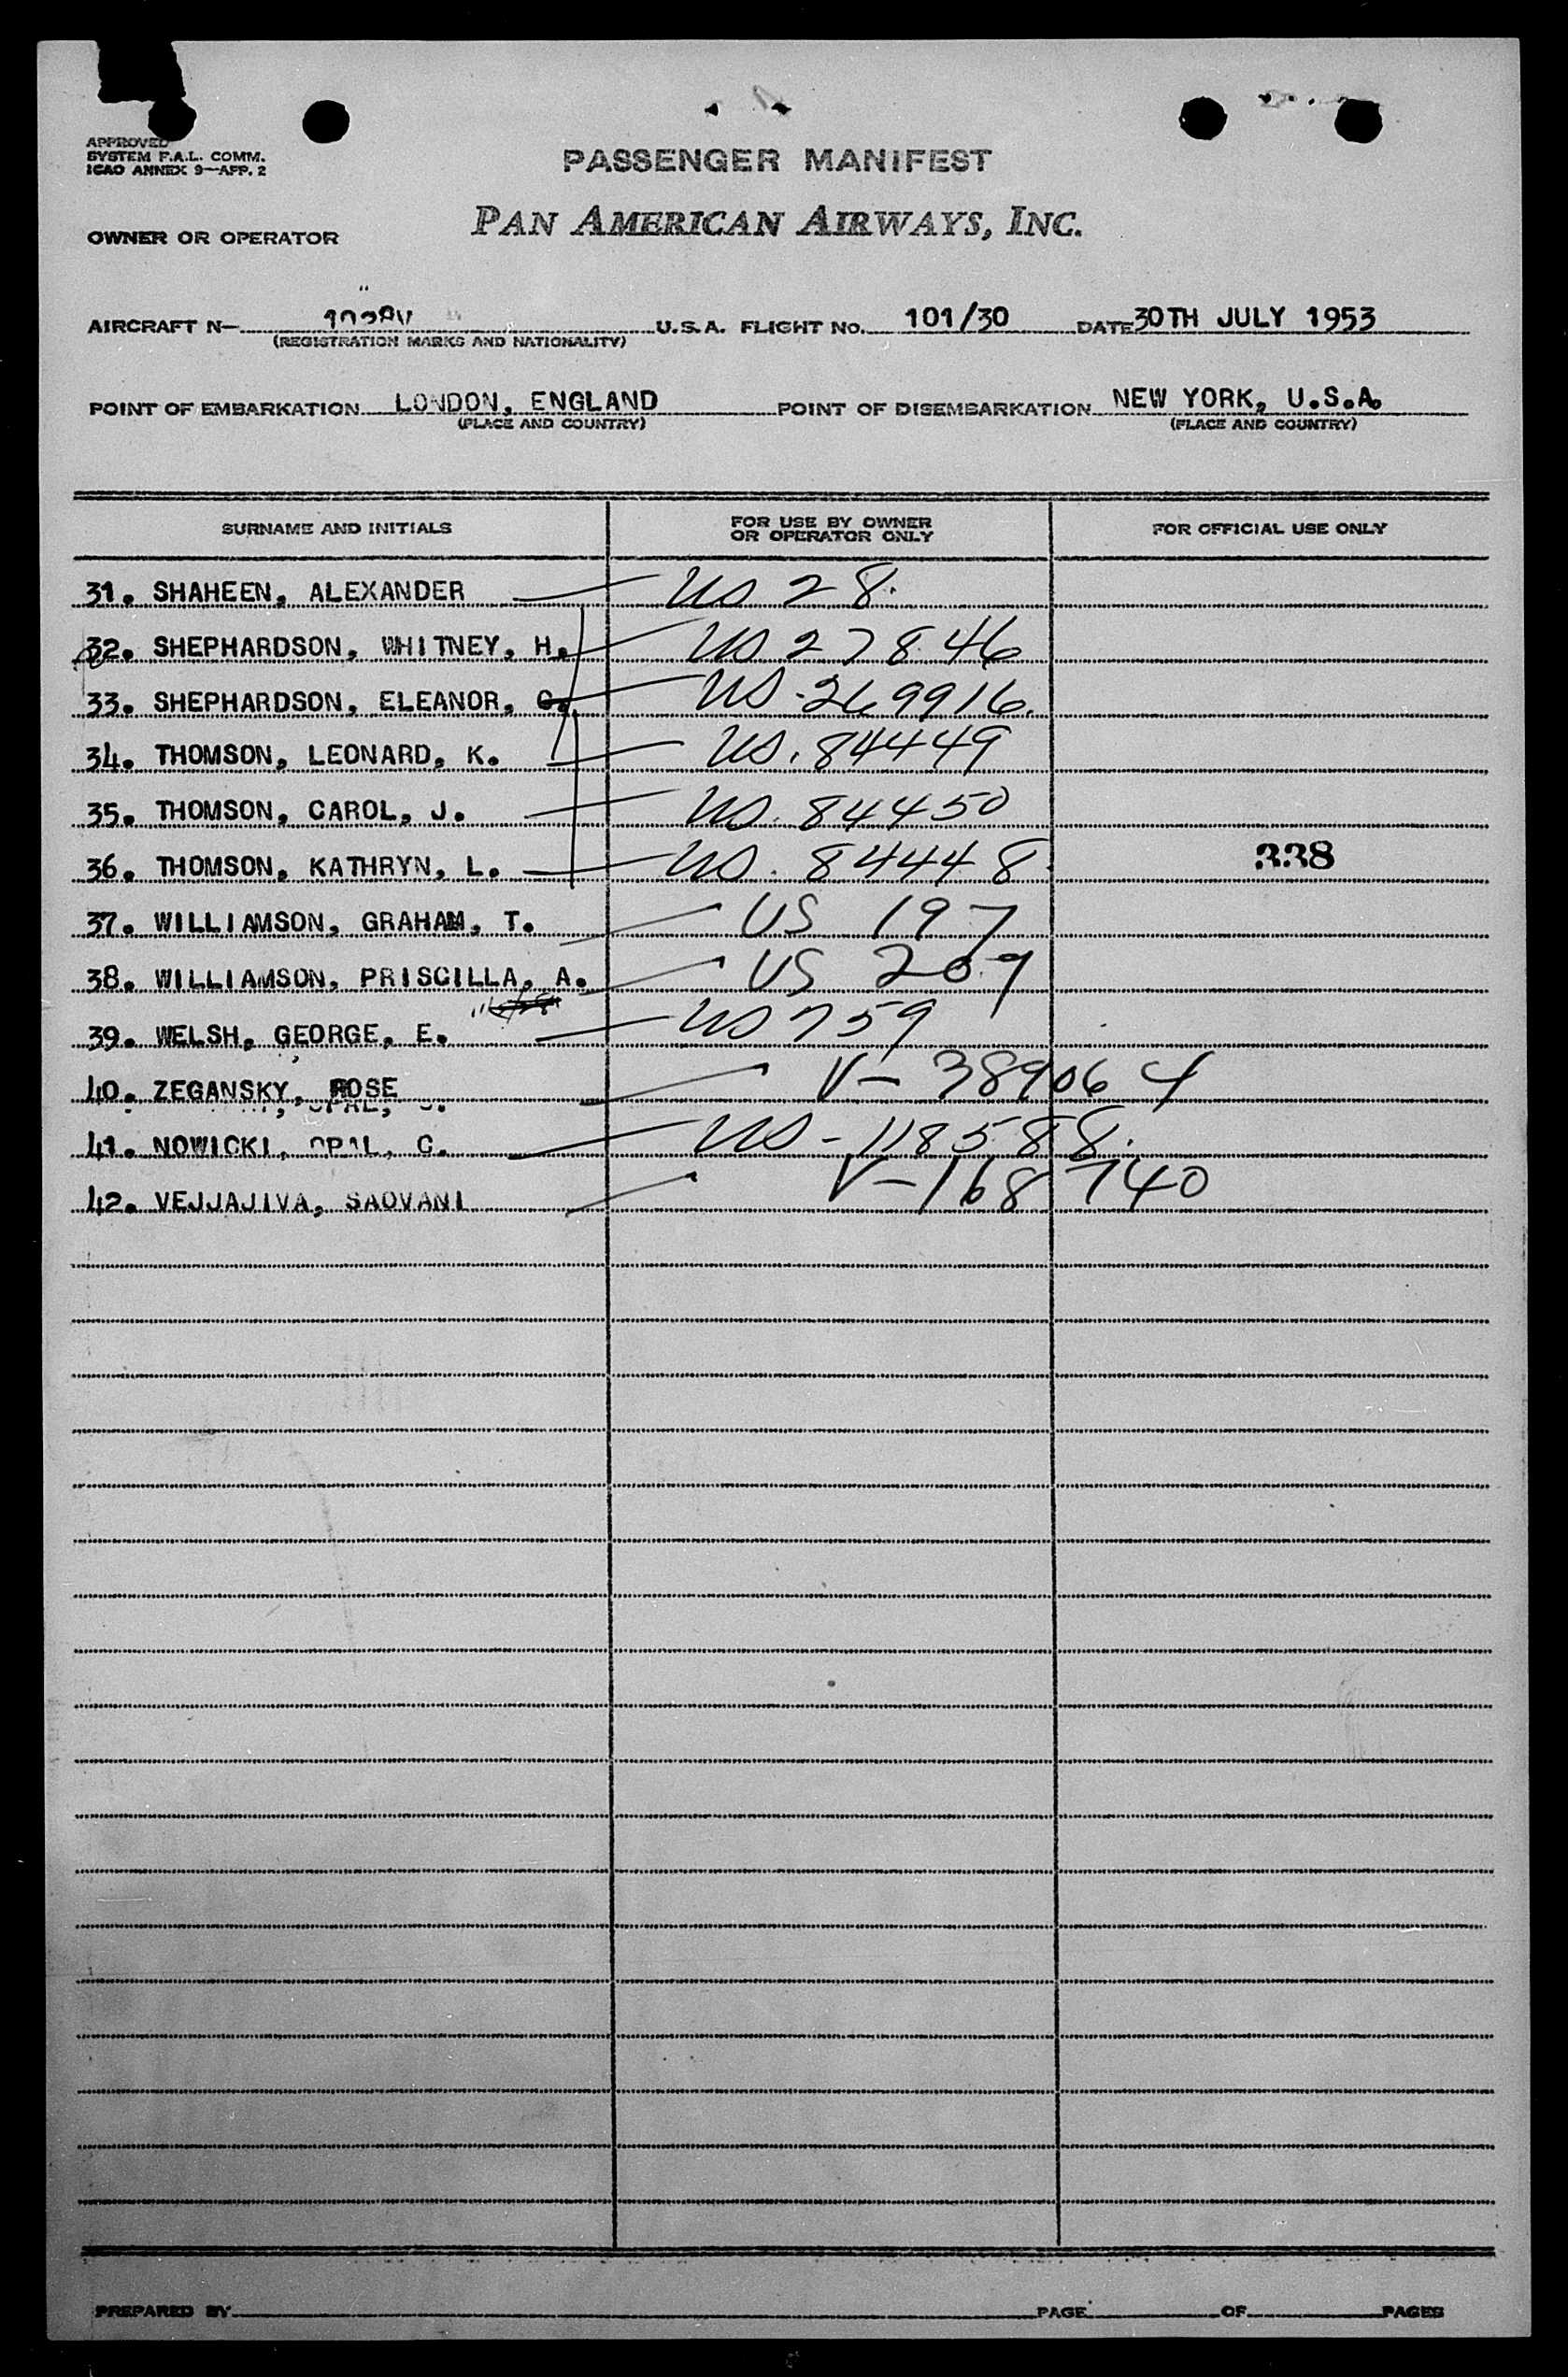 APPROVED
SYSTEM F.A.L. COMM.
ICAO ANNEX 9—APP. 2
PASSENGER MANIFEST
OWNER OR OPERATOR PAN AMERICAN AIRWAYS, INC.
AIRCRAFT N— U.S.A. FLIGHT NO. 101/30 DATE 30TH JULY 1953
(REGISTRATION MARKS AND NATIONALITY)
POINT OF EMBARKATION LONDON, ENGLAND POINT OF DISEMBARKATION NEW YORK, U.S.A.
(PLACE AND COUNTRY) (PLACE AND COUNTRY)
SURNAME AND INITIALS FOR USE BY OWNER OR OPERATOR ONLY FOR OFFICIAL USE ONLY
31. SHAHEEN, ALEXANDER US 28.
32. SHEPHARDSON, WHITNEY, H. US 27846
33. SHEPHARDSON, ELEANOR, US-269916.
34. THOMSON, LEONARD, K. US. 84449
35. THOMSON, CAROL, J. US. 84450
36. THOMSON, KATHRYN, L. US. 84448. 338
37. WILLIAMSON, GRAHAM, T. US 197
38. WILLIAMSON, PRISCILLA, A. US 209
39. WELSH, GEORGE, E. US 759
40. ZEGANSKY, ROSE V-389064
41. NOWICKI, OPAL, C. US-118588.
42. VEJJAJIVA, SAOVANI V-168740
PREPARED BY PAGE OF PAGES